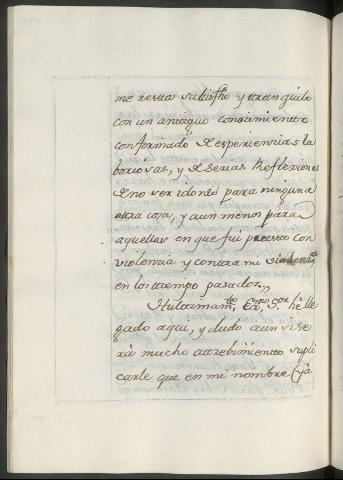 me resua satisfho y tranquilo
con un antiguo conosimiento
confirmado de esperiencias la
boriosas, y de serias Reflexiones
de no ser idoneo para ninguna
otra cosa, y aun menos para
aquellas en que fui puesto con
violencia y contra mi
en los tiempo pasados,,
Ultimamte. Exmo. Sor. hè lle
gado aqui, y dudo aun si se
rà mucho atrebimiento supli
carle que en mi nombre (ya